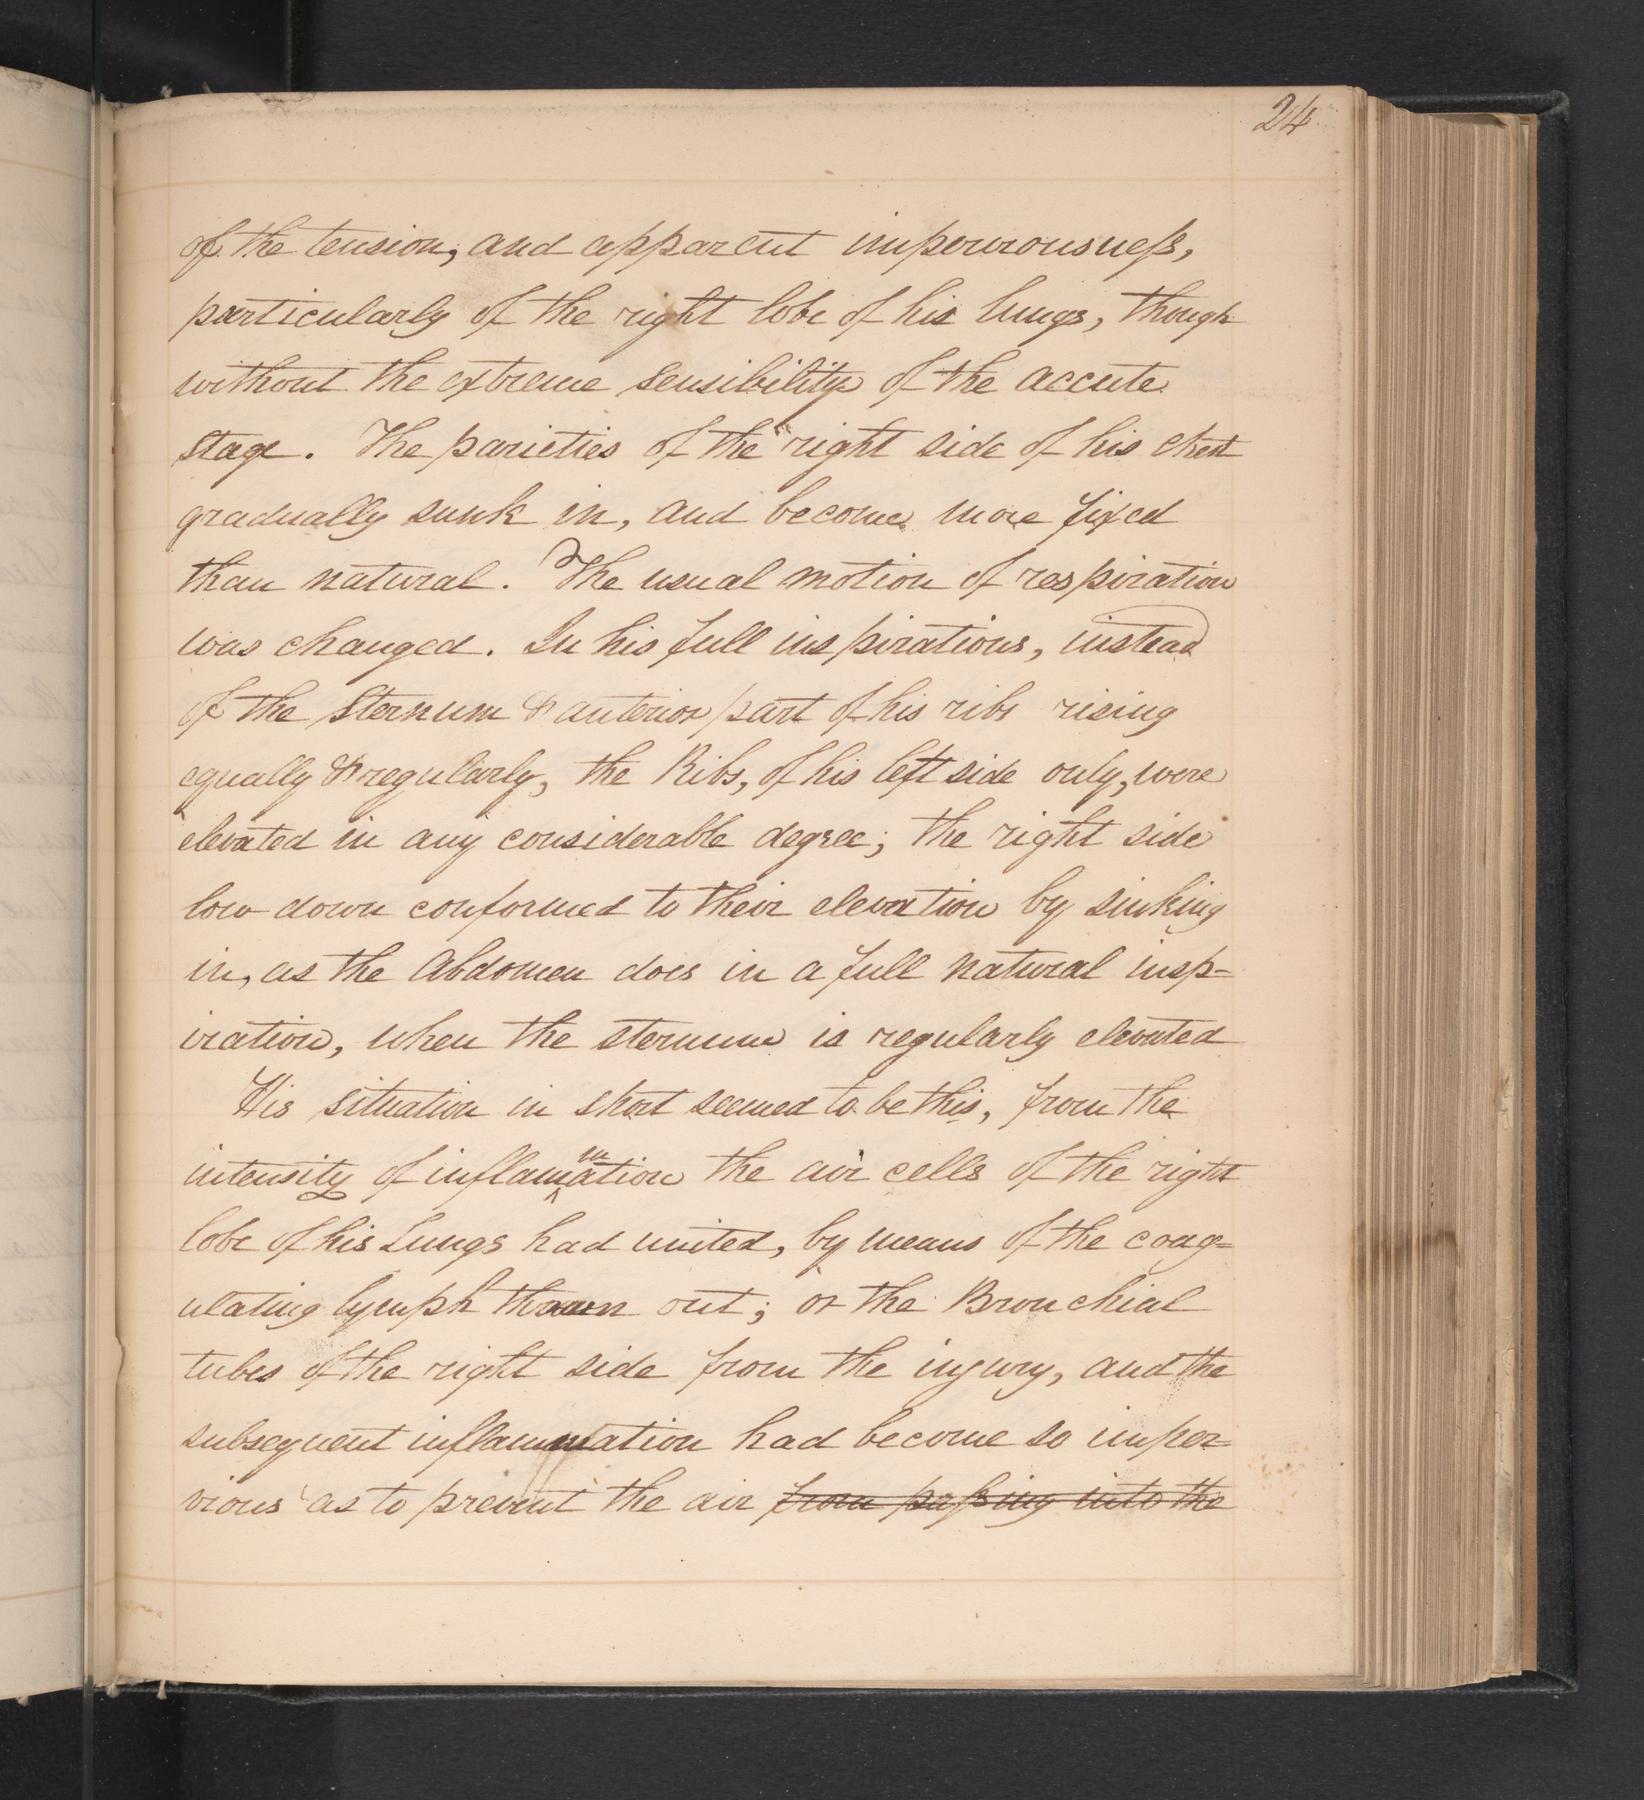 24
of the tension, and apparent imperviousness,
particularly of the right lobe of his lungs, though
without the extreme sensibility of the accute
stage. The parieties of the right side of his chest
gradually sunk in, and become more fixed
than natural. The usual motion of respiration
was changed. In his full inspirations, instead
of the Sternum & anterior part of his ribs rising
equally & regularly, the Ribs, of his left side only, were
elevated in any considerable degree; the right side
low down conformed to their elevation by sinking
in, as the Abdomen does in a full natural insp=
iration, when the sternum is regularly elevated
His situation in short seemed to be this, from the
intensity of inflammation the air cells of the right
lobe of his Lungs had united, by means of the coag=
ulating lymph thrown out; or the Bronchial
tubes of the right side from the injury, and the
subsequent inflammation had become so imper=
vious as to prevent the air from passing into the